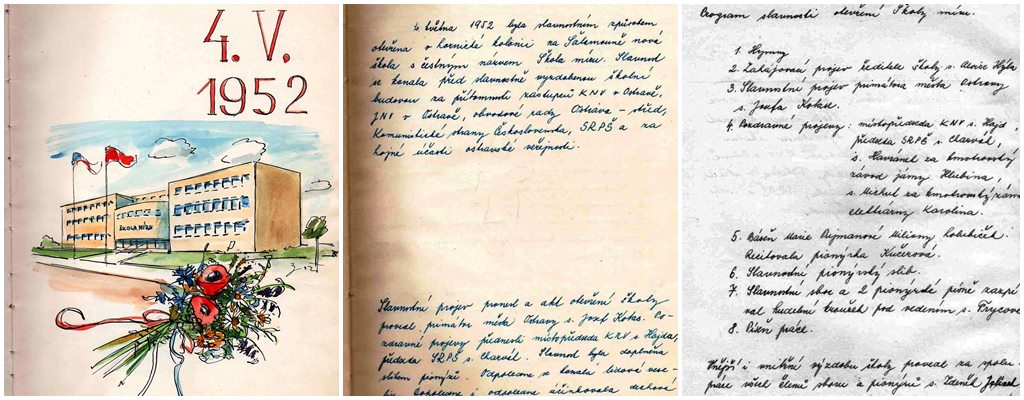 4. V.
1952
ŠKOLA MÍRU
4. května 1952 byla slavnostním způsobem
otevřena v hornické kolonii na Šalamouně nová
škola s čestným názvem Škola míru. Slavnost
se konala před slavnostně vyzdobenou školní
budovou za přítomnosti zástupců KNV v Ostravě,
JNV v Ostravě, obvodové rady Ostrava - střed,
Komunistické strany Československa, SRPŠ a za
hojné účasti ostravské veřejnosti.
Slavnostní projev pronesl a akt otevření školy
provedl primátor města Ostravy s. Josef Kotas. Po-
zdravné projevy přednesli místopředseda KNV s. Hajda,
předseda SRPŠ s. Charvát. Slavnost byla doplněna
slibem pionýrů. Odpoledne se konala lidová vese-
Dopoledne i odpoledne účinkovala dechová
Program slavnosti otevření Školy míru.
1. Hymny
2. Zahajovací projev ředitele školy s. Aloise Hýla
3. Slavnostní projev primátora města Ostravy
s. Josefa Kotas.
4. Pozdravné projevy: místopředseda KNV s. Hajd,
předseda SRPŠ s. Charvát,
s. Havránek za kmotrovský
závod jámy Hlubina,
s. za kmotrovský záv
elektrárny Karolina.
5. Báseň Marie Miliony Kolibiček.
Recitovala pionýrka Kučerová.
6. Slavnostní pionýrský slib.
7. Slavnostní sbor a 2 pionýrské písně zazpí
val hudební kroužek pod vedením s. Frycové
8. Píseň práce.
Vnější i vnitřní výzdobu školy provedl za spolu-
práce všech členů sboru a pionýrů s. Zdeněk